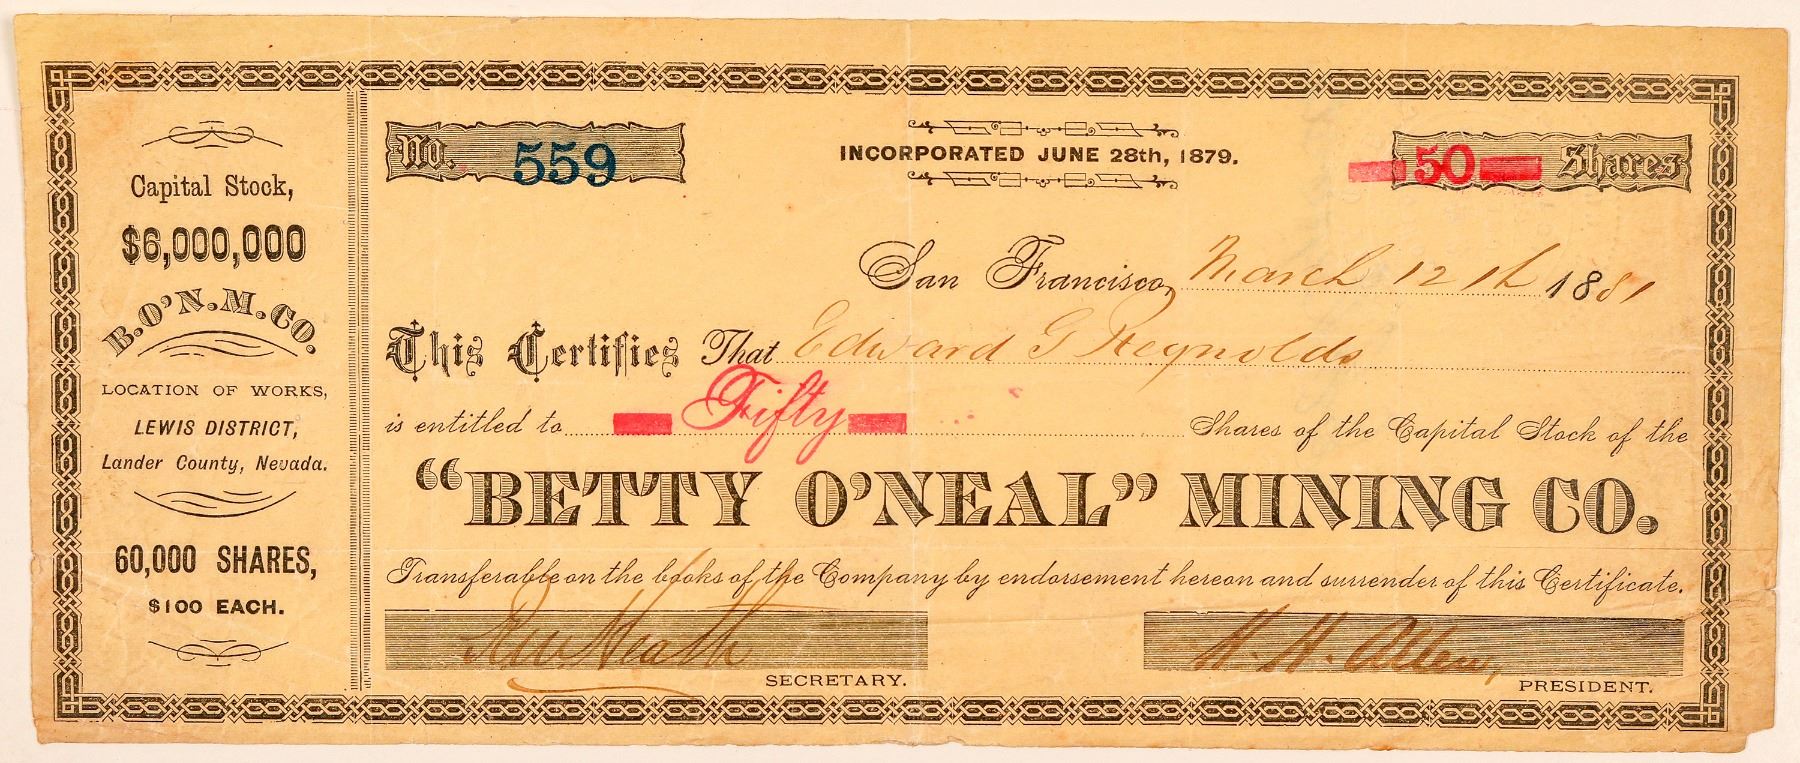 Capital Stock,
$6,000,000
B.O'N.M.CO.
LOCATION OF WORKS,
LEWIS DISTRICT,
Lander County, Nevada.
60,000 SHARES,
$100 EACH.
No. 559
INCORPORATED JUNE 28th, 1879.
50 Shares
San Francisco, March 12th 1881
This Certifies That Edward G Reynolds
is entitled to Fifty Shares of the Capital Stock of the
"BETTY O'NEAL" MINING CO.
Transferable on the books of the Company by endorsement hereon and surrender of this Certificate.
Heath
SECRETARY.
H. H. Allen,
PRESIDENT.